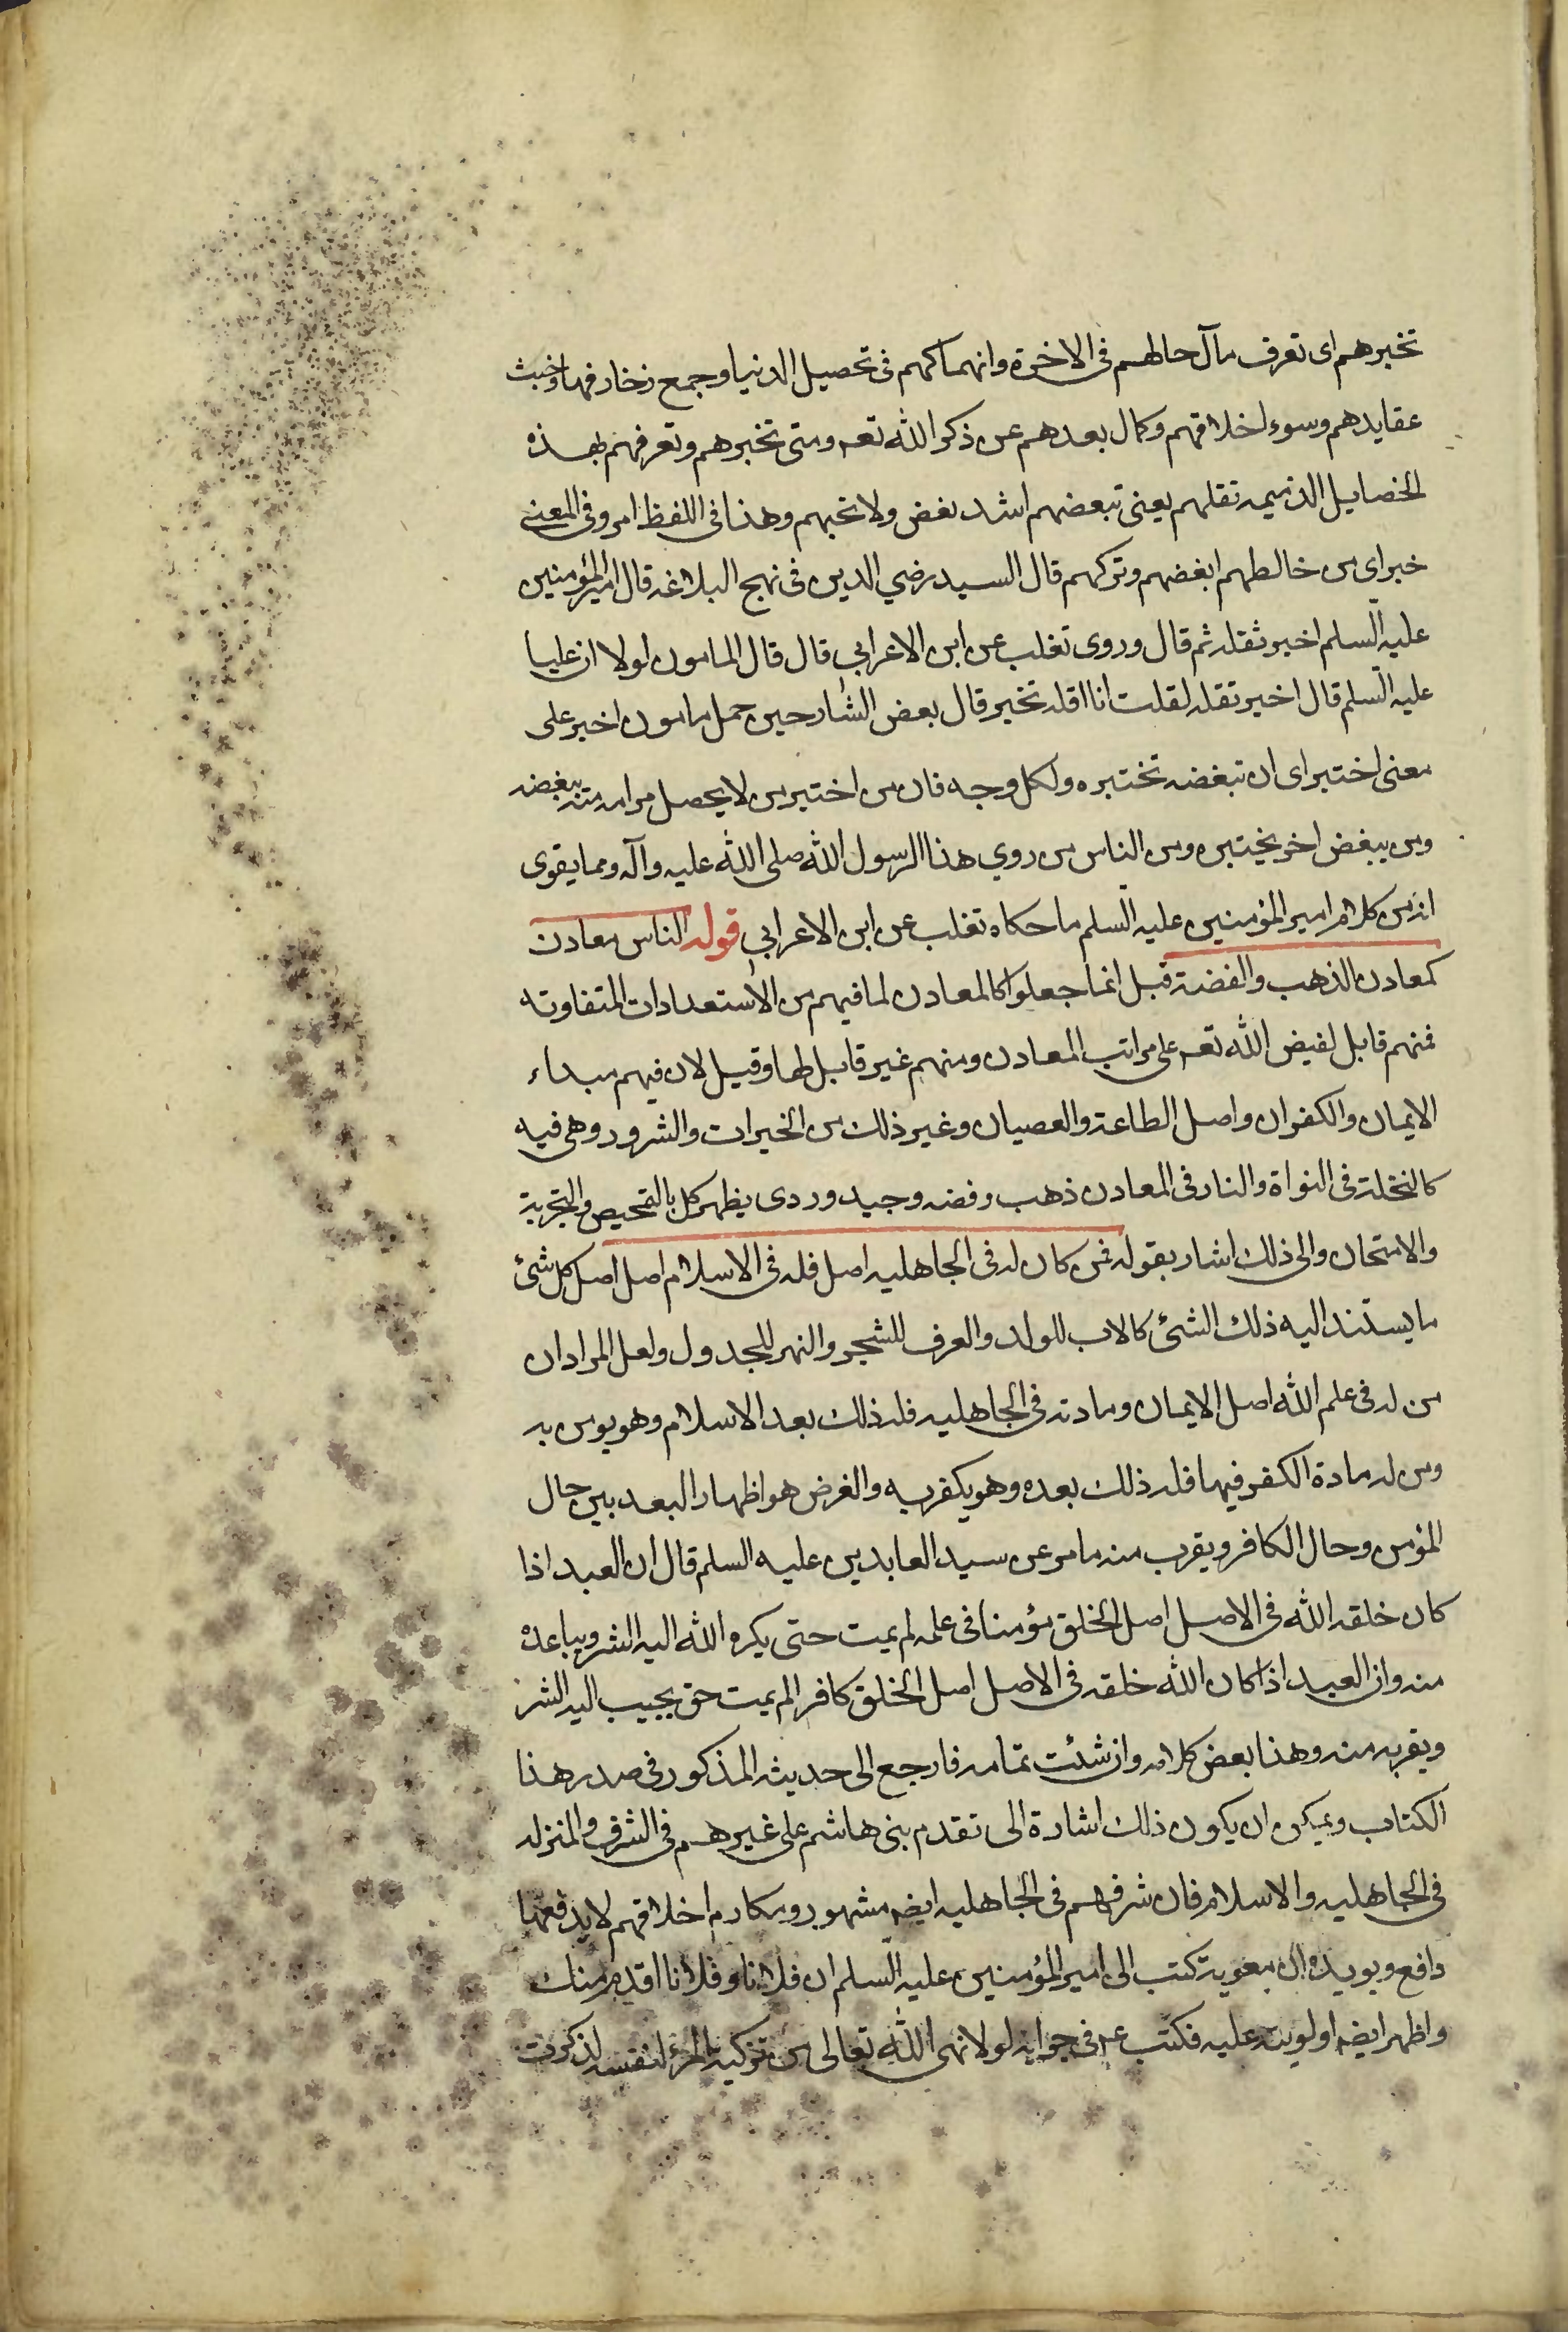 تخبرهم اى تعرف مآل حالهم فى الاخرة وانهماكهم فى تحصيل الدنيا وجمع زخارفها وخبث
عقايدهم وسوء اخلاقهم وكمال بعدهم عن ذكر الله تعه ومتى تخبرهم وتعرفهم بهذه
الخصايل الذميمه تقلهم يعنى تبغضهم اشد بغض ولا تحبهم وهذا فى اللفظ امر وفى المعنى
خبر اى من خالطهم ابغضهم وتركهم قال السيد رضي الدين فى نهج البلاغه قال امير المؤمنين
عليه السلم اخبر تقله ثم قال وروى تغلب عن ابن الاعرابي قال قال المامون لولا ان عليا
عليه السلم قال اخبر تقله لقلت انا اقله تخبر قال بعض الشارحين حمل مامون اخبر على
معنى اختبر اى ان تبغضه تختبره ولكل وجه فان من اختبر من لا يحصل مرامه منه يبغضه
ومن يبغض اخر يختبره ومن الناس من روي هذا الرسول الله صلى الله عليه وآله ومما يقوى
انه من كلام امير المؤمنين عليه السلم ما حكاه تغلب عن ابن الاعرابي قوله الناس معادن
كمعادن الذهب والفضة قيل انما جعلوا كالمعادن لما فيهم من الاستعدادات المتفاوته
فمنهم قابل لفيض الله تعه على مراتب المعادن ومنهم غير قابل لها وقيل لان فيهم مبداء
الايمان والكفران واصل الطاعة والعصيان وغير ذلك من الخيرات والشرور وهى فيه
كالنخلة فى النواة والنار فى المعادن ذهب وفضه وجيد وردى يظهر كل بالتمحيص والتجربة
والامتحان والى ذلك اشار بقوله فمن كان له فى الجاهليه اصل فله فى الاسلام اصل اصل كل شئ
ما يستند اليه ذلك الشئ كالاب للولد والعرف للشجر والنهر للجدول ولعل المراد ان
من له فى علم الله اصل الايمان ومادته فى الجاهليه فله ذلك بعد الاسلام وهو يومن به
ومن له مادة الكفر فيها فله ذلك بعده وهو يكفر به والغرض هو اظهار البعد بين حال
المؤمن وحال الكافر ويقرب منه ما مر عن سيد العابدين عليه السلم قال ان العبد اذا
كان خلقه الله فى الاصل اصل الخلق مؤمنا فى علمه لم يمت حتى يكره الله اليه الشر ويباعده
منه وان العبد اذا كان الله خلقه فى الاصل اصل الخلق كافرا لم يمت حتى يحبب اليه الشر
ويقربه منه وهذا بعض كلامه وان شئت تمامه فارجع الى حديثه المذكور فى صدر هذا
الكتاب ويمكن ان يكون ذلك اشارة الى تقدم بنى هاشم على غيرهم فى الشرف والمنزله
فى الجاهليه والاسلام فان شرفهم فى الجاهليه ايضه مشهور ومكارم اخلاقهم لا يدفعها
دافع ويويده ان معوية كتب الى امير المؤمنين عليه السلم ان فلانا وفلانا اقدم منك
واظهر ايضه اولويته عليه فكتب عم فى جوابه لولا نهى الله تعالى من تزكية المرء لنفسه لذكرت